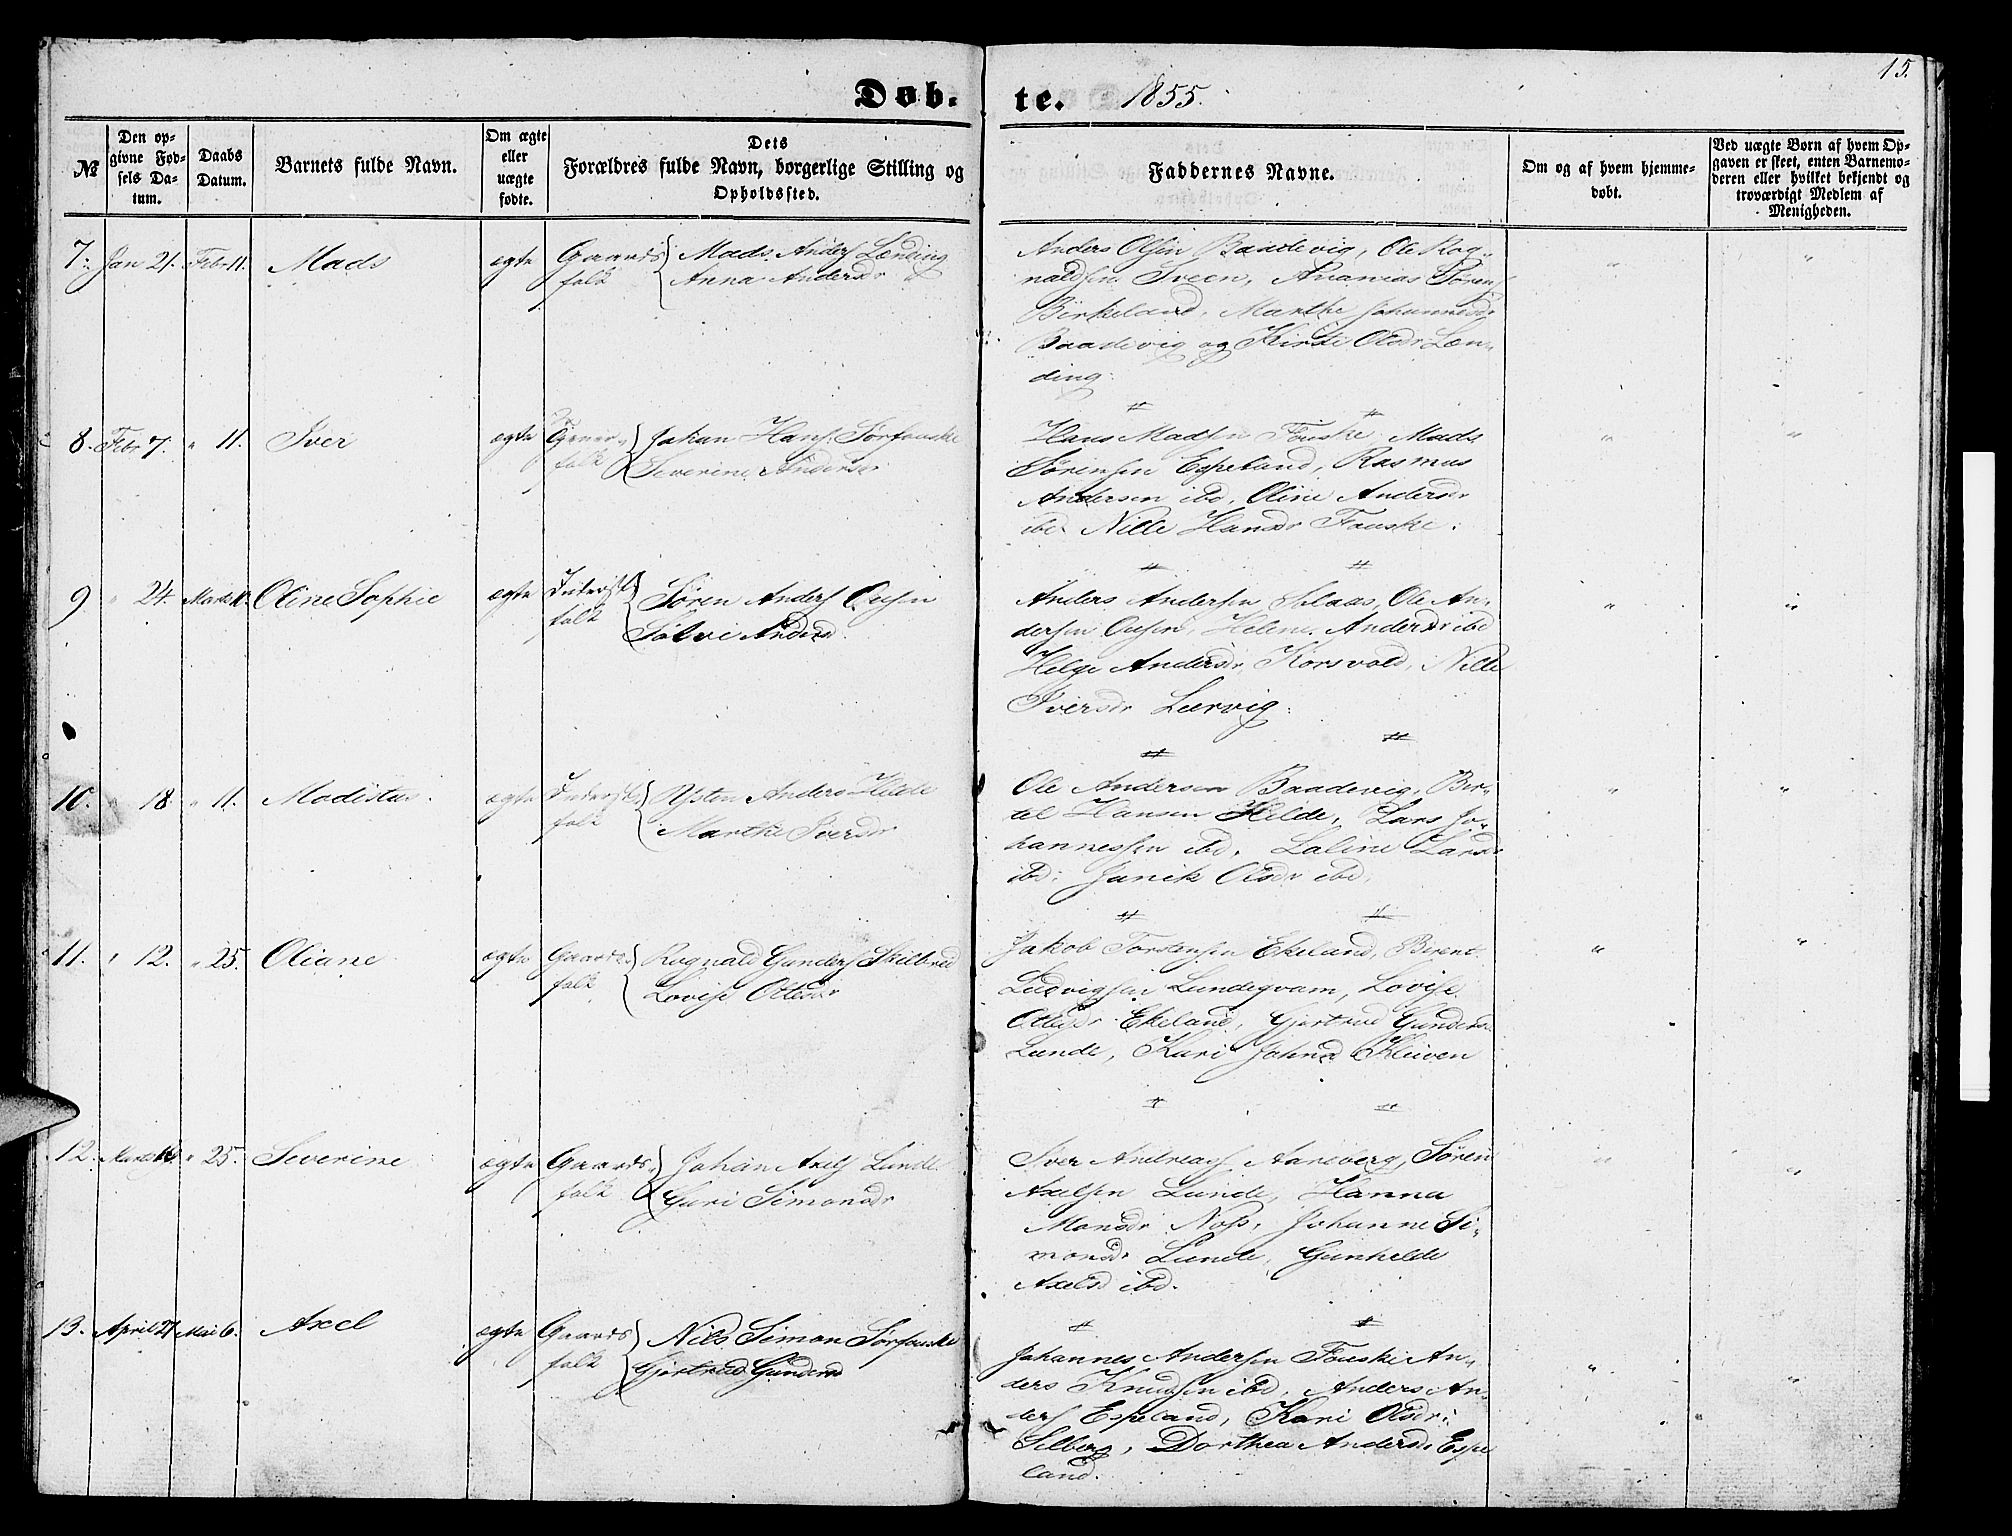 15.
Døb-
te. 1855.
№
Den op-
givne Fød-
sels Da-
tum.
Daabs
Datum.
Barnets fulde Navn.
Om ægte
eller
uægte
fødte.
Dets
Forældres fulde Navn, borgerlige Stilling og
Opholdssted.
Faddernes Navne.
Om og af hvem hjemme-
døbt.
Ved uægte Børn af hvem Op-
gaven er skeet, enten Barnemo-
deren eller hvilket bekjendt og
troværdigt Medlem af
Menigheden.
7. Jan 21. Febr 11. Mads ægte Gaards Mads Anders Lænding
folk Anna Andersdr
Anders Olsen Baadevig, Ole Rog-
naldsen Sveen, Ananias Sørens
Birkeland, Marthe Johannesdr
Baadevig og Kirsti Olsdr Læn-
ding.
8. Febr 7. " 11. Iver ægte Johan Hans. Sørfouske
folk Severine Andersdr
Hans Madsen Fouske, Mads
Sørensen Espeland, Rasmus
Andersen ibd, Oline Andersdr
ibd Nille Hansdr Fouske.
9 " 24. Marts 11. Oline Sophie ægte Inderst Søren Anders
folk Sølvi Andersd
Anders Andersen Selaas, Ole An-
dersen Helene Andersdr ibd
Helge Andersdr Korsvold, Nille
Iversdr Lervig.
10. " 18. " 11. Modistus. ægte Inderst Anders Hilde
folk Marthe Iversdr
Ole Andersen Baadevig, Ber-
tel Hansen Hilde, Lars Jo-
hannessen ibd, Laline Larsdr
ibd. Janik Olsdr ibd.
11. " 12. " 25. Oliane ægte Gaards Rognald Gunders Skilbred
folk Lovise Ottesdr
Jakob Torstensen Ekeland, Berent
Ludvigsen Lundeqvam, Lovise
Ottesdr Ekeland, Gjertrud Gundersd
Lunde, Kari Johnsd Kleiven
12. Marts " 25. Severine ægte Gaards Johan Axels Lunde
folk Guri Simonsdr
Iver Andreass Aarsverg, Søren
Axelsen Lunde, Hanna
Monsdr Noss, Johanne Si-
monsdr Lunde, Gunhelde
Axelsd ibd.
13. April 27 Mai 6. Axel ægte Gaards Nils Simon Sørfouske
folk Gjertrud Gundersd
Johannes Andersen Fouske An-
ders Knudsen ibd, Anders An-
ders Espeland, Kari Olsdr
Selberg, Dorthea Andersdr Espe
land.